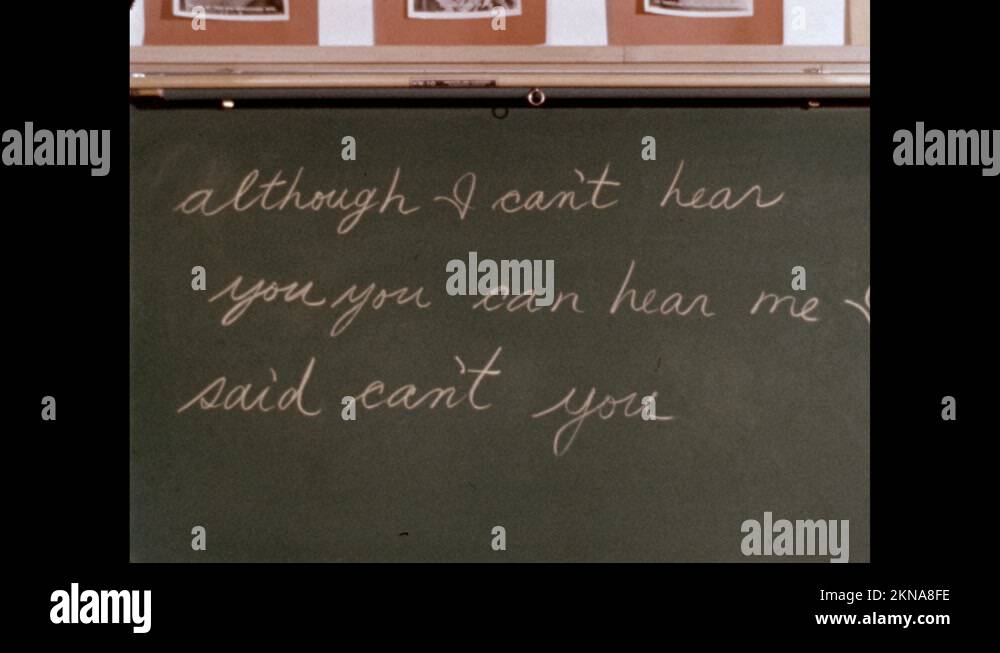 although I can't hear
you you can hear me I
said can't you
alamy
alamy
alamy
alamy
alamy
Image ID: 2KNA8FE
www.alamy.com